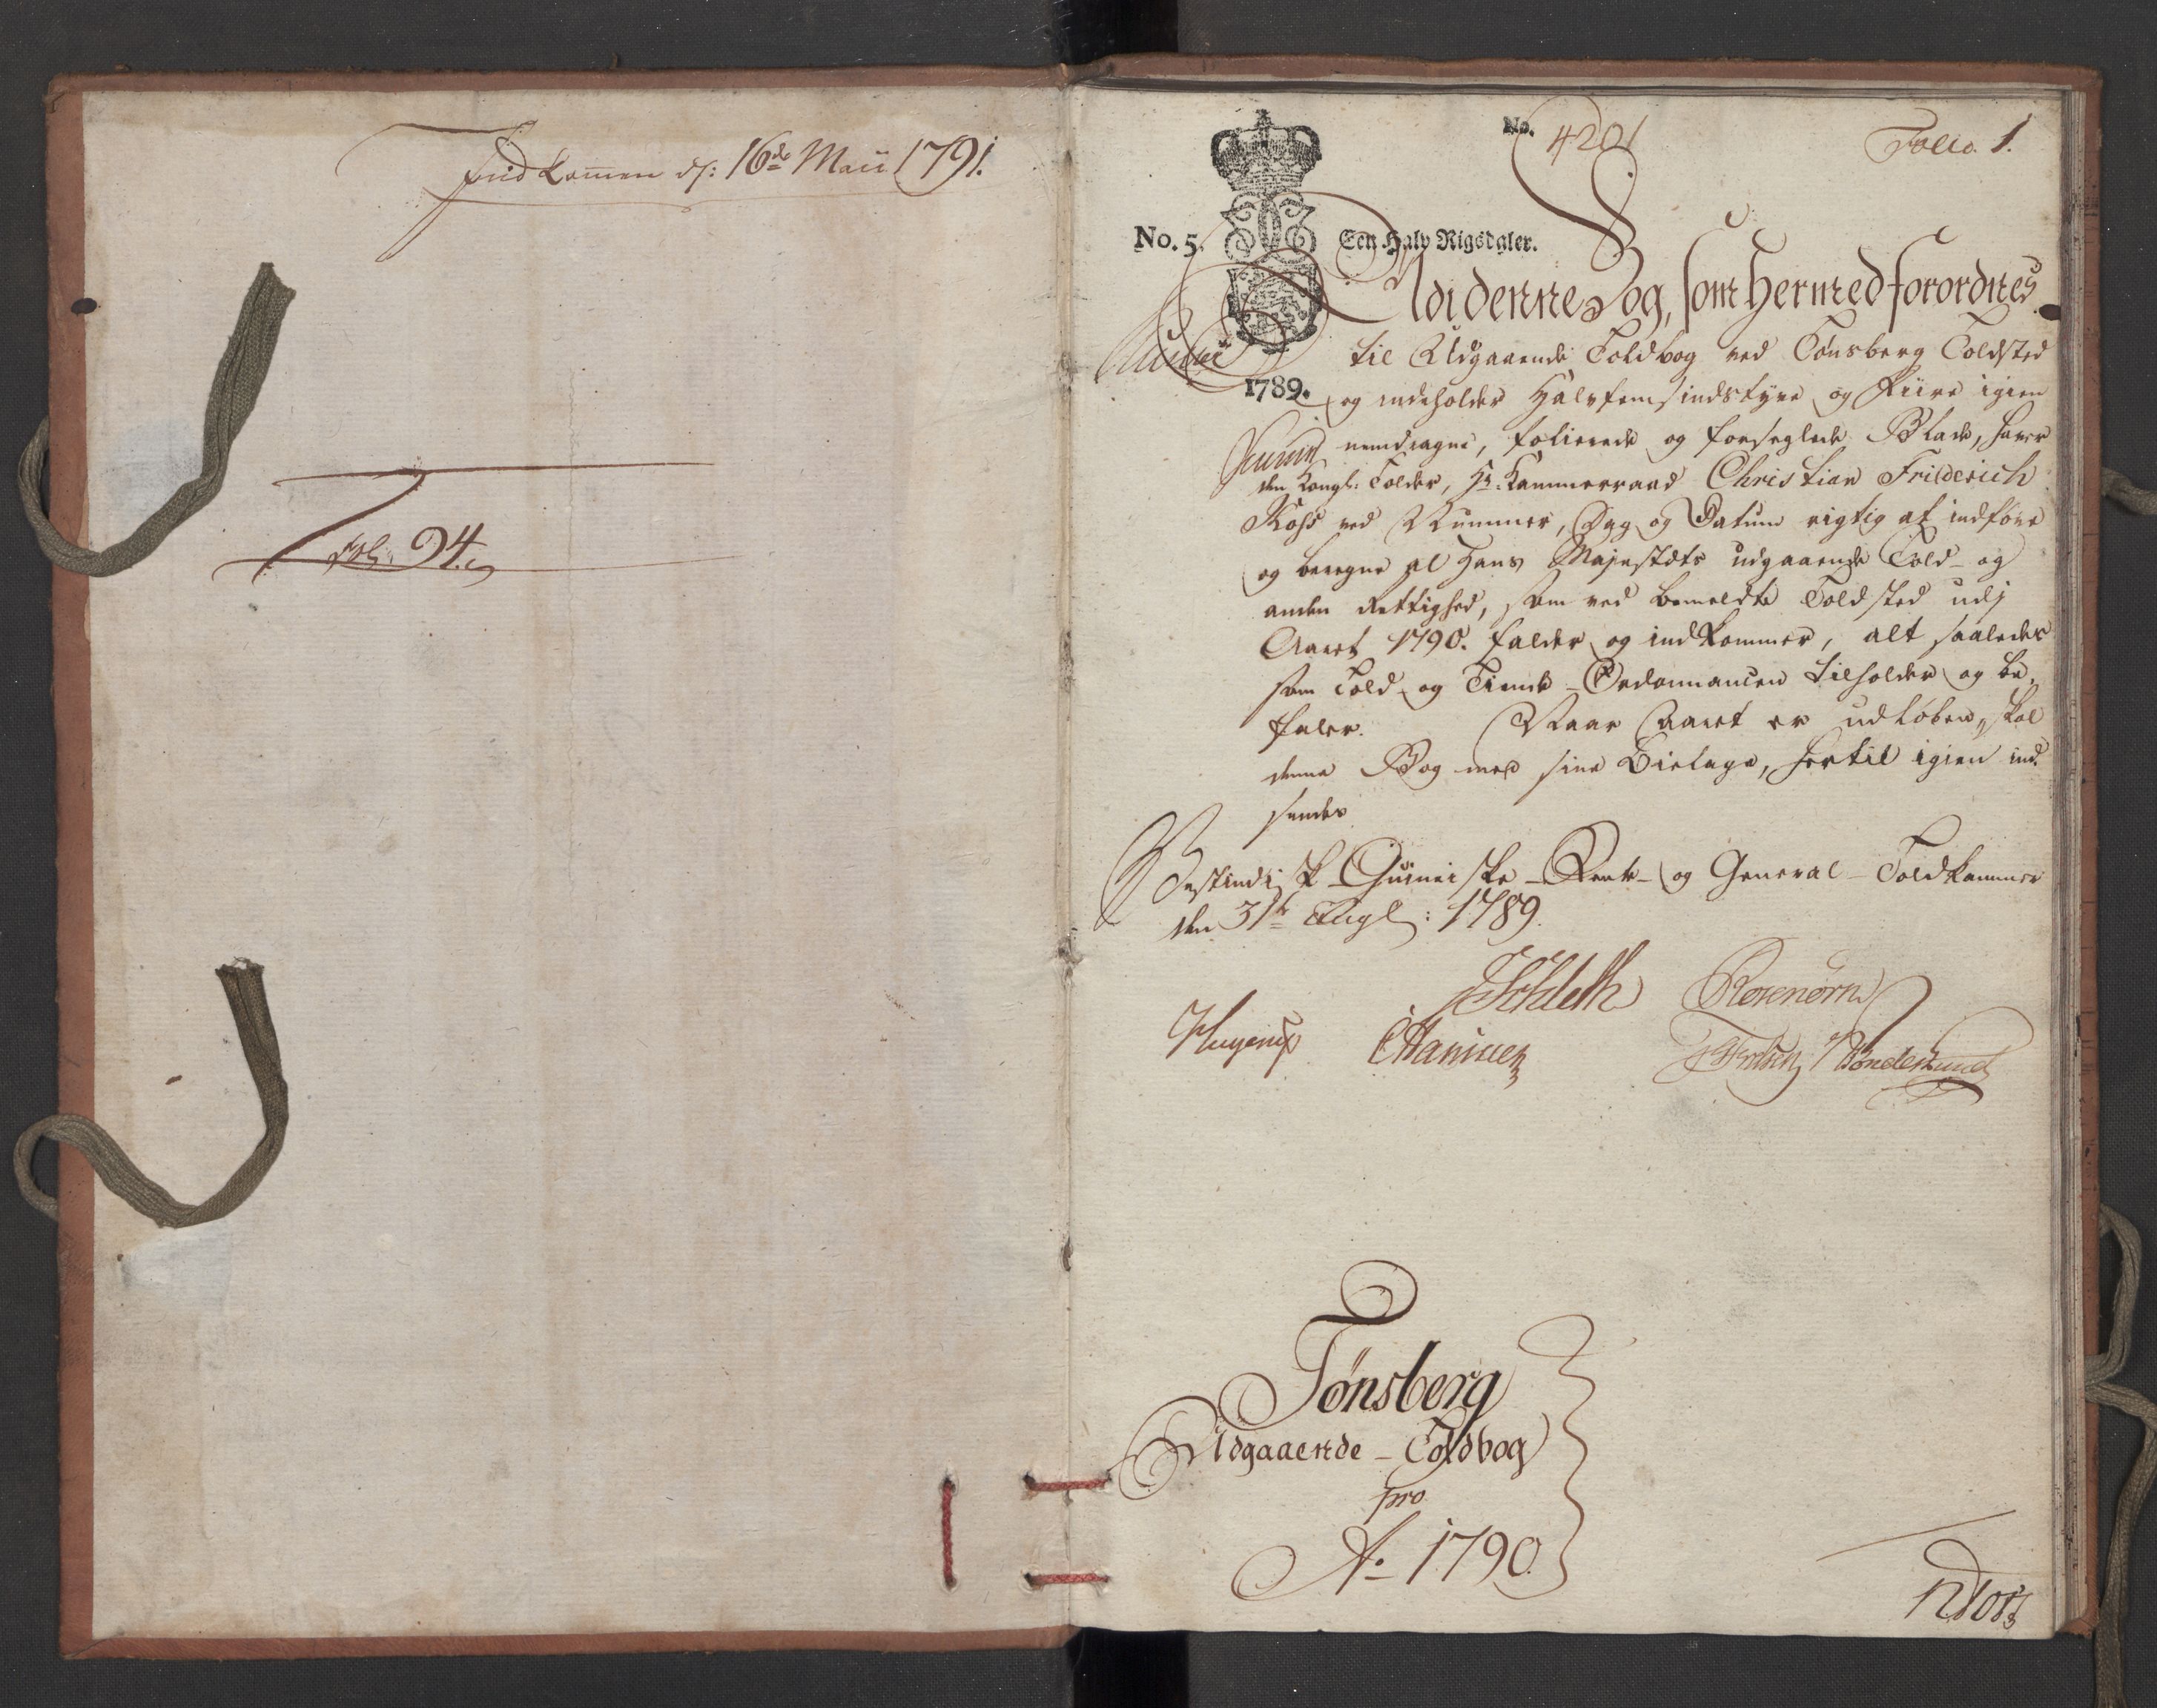 Indkommen d: 16de Maii 1791.
Fol: 94.
No. 4201
Folio. 1.
No. 5.
Een Halv Rigsdaler.
Udi denne Bog, som hermed forordnes
til Udgaaende Toldbog ved Tønsberg Toldsted
1789.
og indeholder Halvfemsindstyve og Fiire igien
nemdragne, folierede og forseglede Blade, haver
den Kongl: Tolder, Hr. Kammerraad Christian Friderich
Ross ved Nummer, Dag og Datum rigtig at indføre
og beregne al Hans Majestæts udgaaende Told- og
anden Rettighed, som ved bemeldte Toldsted udj
Aaret 1790. falder og indkommer, alt saaledes
som Told og Tiende-Ordonnancen tilholder og be-
faler. Naar Aaret er udløben, skal
denne Bog med sine Bielage, hertil igien ind-
sendes
Vestindisk-Guineiske-Rente- og General-Toldkammer
den 31te Augl: 1789.
Schleth Rosenørn
Hansen
Tønsberg
Udgaaende-Toldbog
pro
Ao 1790.